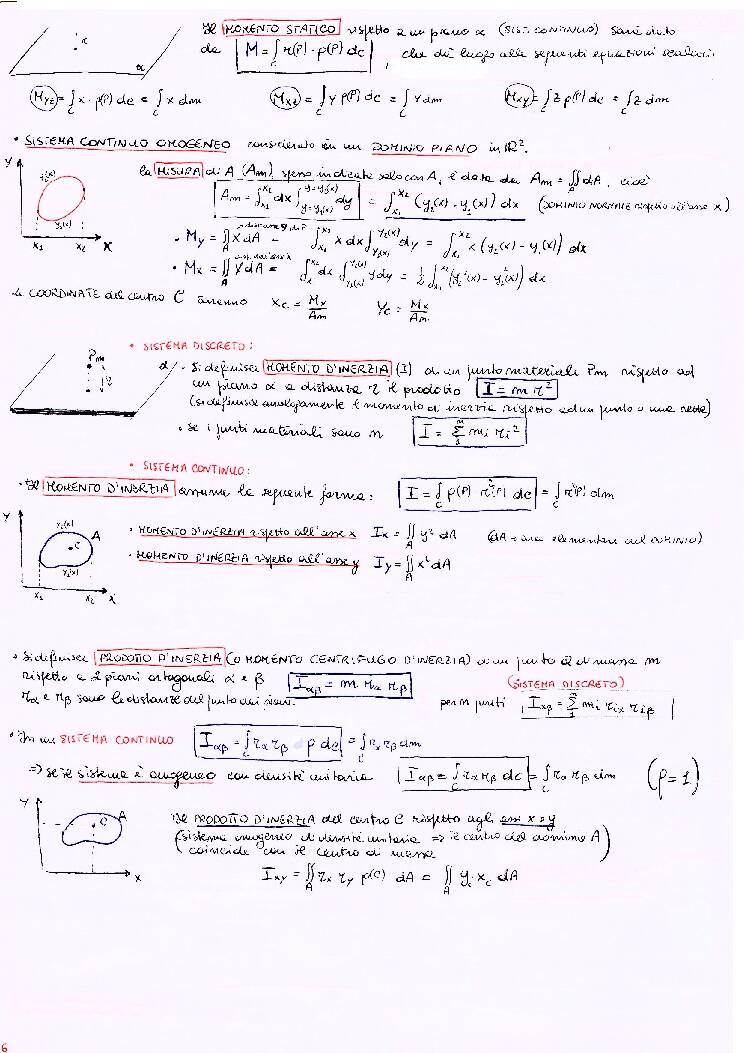 Il MOMENTO STATICO rispetto a un piano α (SIST. CONTINUO) sarà dato
da M = ∫_C r(P) · ρ(P) dc , che dà luogo alle seguenti equazioni scalari:
α
c
M_yz = ∫_C x · ρ(P) dc = ∫_C x dm   M_xz = ∫_C y ρ(P) dc = ∫_C y dm   M_xy = ∫_C z ρ(P) dc = ∫_C z dm
• SISTEMA CONTINUO OMOGENEO considerato in un DOMINIO PIANO in R².
La MISURA di A (Am), spesso indicata solo con A, è data da Am = ∬_A dA, cioè
Am = ∫_x1^x2 dx ∫_{y=y1(x)}^{y=y2(x)} dy = ∫_x1^x2 (y2(x) - y1(x)) dx (DOMINIO NORMALE rispetto all'asse x)
y y2(x) y1(x) x1 x2 x
• My = ∬_A x dA = ∫_x1^x2 x dx ∫_{y1(x)}^{y2(x)} dy = ∫_x1^x2 x (y2(x) - y1(x)) dx
• Mx = ∬_A y dA = ∫_x1^x2 dx ∫_{y1(x)}^{y2(x)} y dy = 1/2 ∫_x1^x2 (y2²(x) - y1²(x)) dx
Le COORDINATE del centro C saranno Xc = My/Am   Yc = Mx/Am
• SISTEMA DISCRETO:
Pm r α
• Si definisce MOMENTO D'INERZIA (I) di un punto materiale Pm rispetto ad
un piano α a distanza r il prodotto I = m r²
(si definisce analogamente il momento di inerzia rispetto ad un punto o una retta)
• se i punti materiali sono n I = Σ_1^n mi ri²
• SISTEMA CONTINUO:
• Il MOMENTO D'INERZIA assume la seguente forma: I = ∫_C ρ(P) r²(P) dc = ∫_C r²(P) dm
y y2(x) A c y1(x) x1 x2 x
• MOMENTO D'INERZIA rispetto all'asse x Ix = ∬_A y² dA (dA = area elementare del DOMINIO)
• MOMENTO D'INERZIA rispetto all'asse y Iy = ∬_A x² dA
• Si definisce PRODOTTO D'INERZIA (O MOMENTO CENTRIFUGO D'INERZIA) di un punto di massa m
rispetto a 2 piani ortogonali α e β I_αβ = m r_α r_β (SISTEMA DISCRETO)
r_α e r_β sono le distanze del punto dai piani. per n punti I_αβ = Σ_1^n mi r_iα r_iβ
• In un SISTEMA CONTINUO I_αβ = ∫_C r_α r_β ρ dc = ∫_C r_α r_β dm
⇒ se il sistema è omogeneo con densità unitaria I_αβ = ∫_C r_α r_β dc = ∫_C r_α r_β dm (ρ = 1)
y A c x
Il PRODOTTO D'INERZIA del centro C rispetto agli assi x e y
(sistema omogeneo di densità unitaria ⇒ il centro del dominio A
coincide con il centro di massa)
Ixy = ∬_A rx ry ρ(C) dA = ∬_A yc xc dA
6